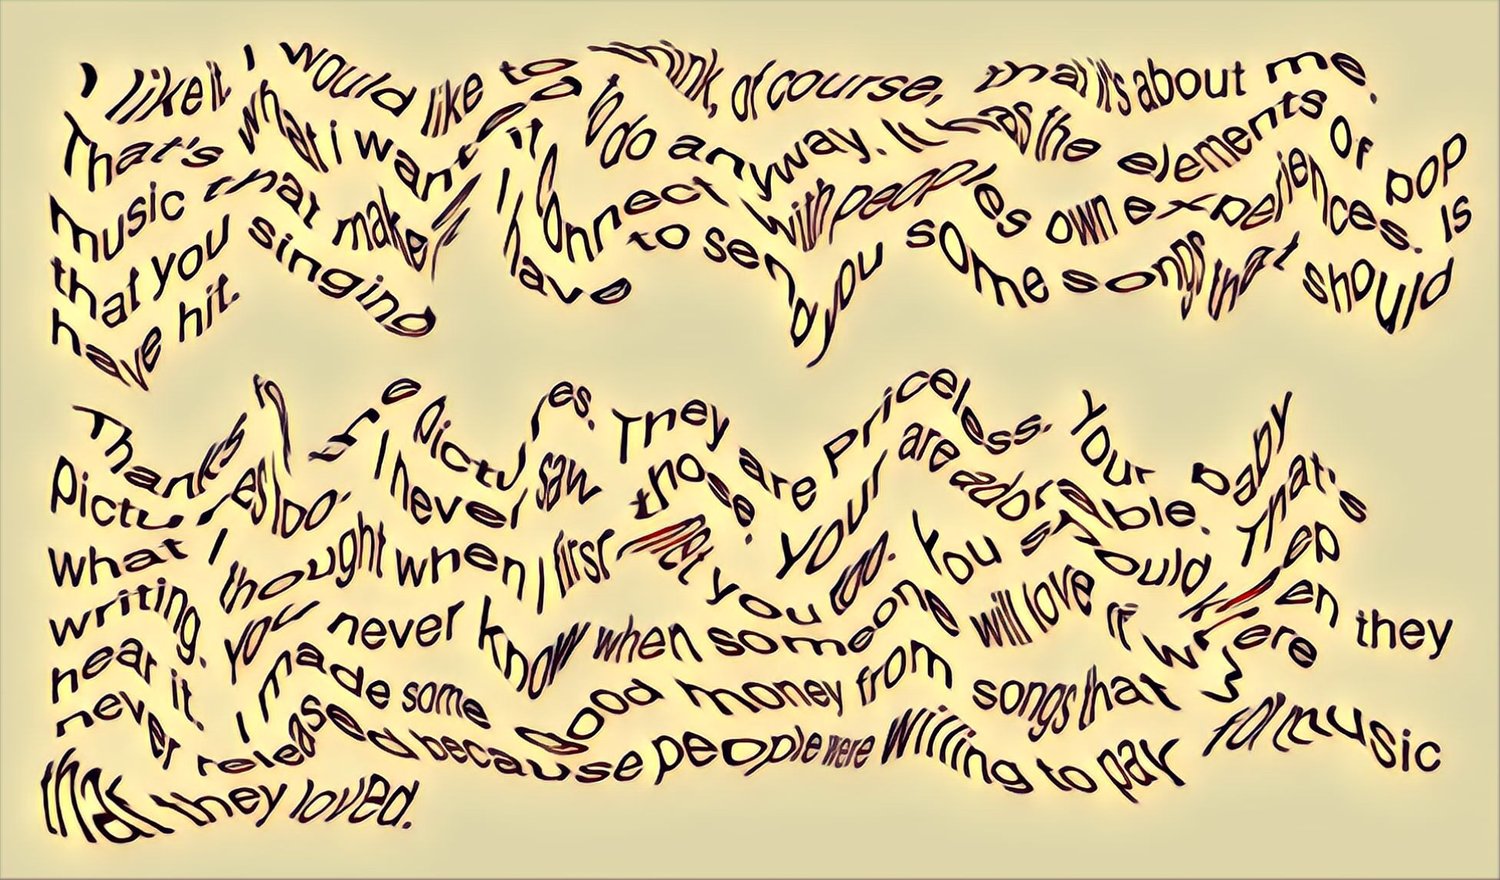 I like it I would like to think, of course, that it's about me.
That's what i want to do anyway. It has the elements of pop
music that make it connect with peoples own experiences. Is
that you singing I have to send you some songs that should
have hit.
Thanks for the pictures. They are Priceless. Your baby
pictures too. I never saw those. Your are adorable. That's
what I thought when I first met you too. You should keep
writing. you never know when someone will love it when they
hear it. I made some good money from songs that were
never released because people were willing to pay for music
that they loved.